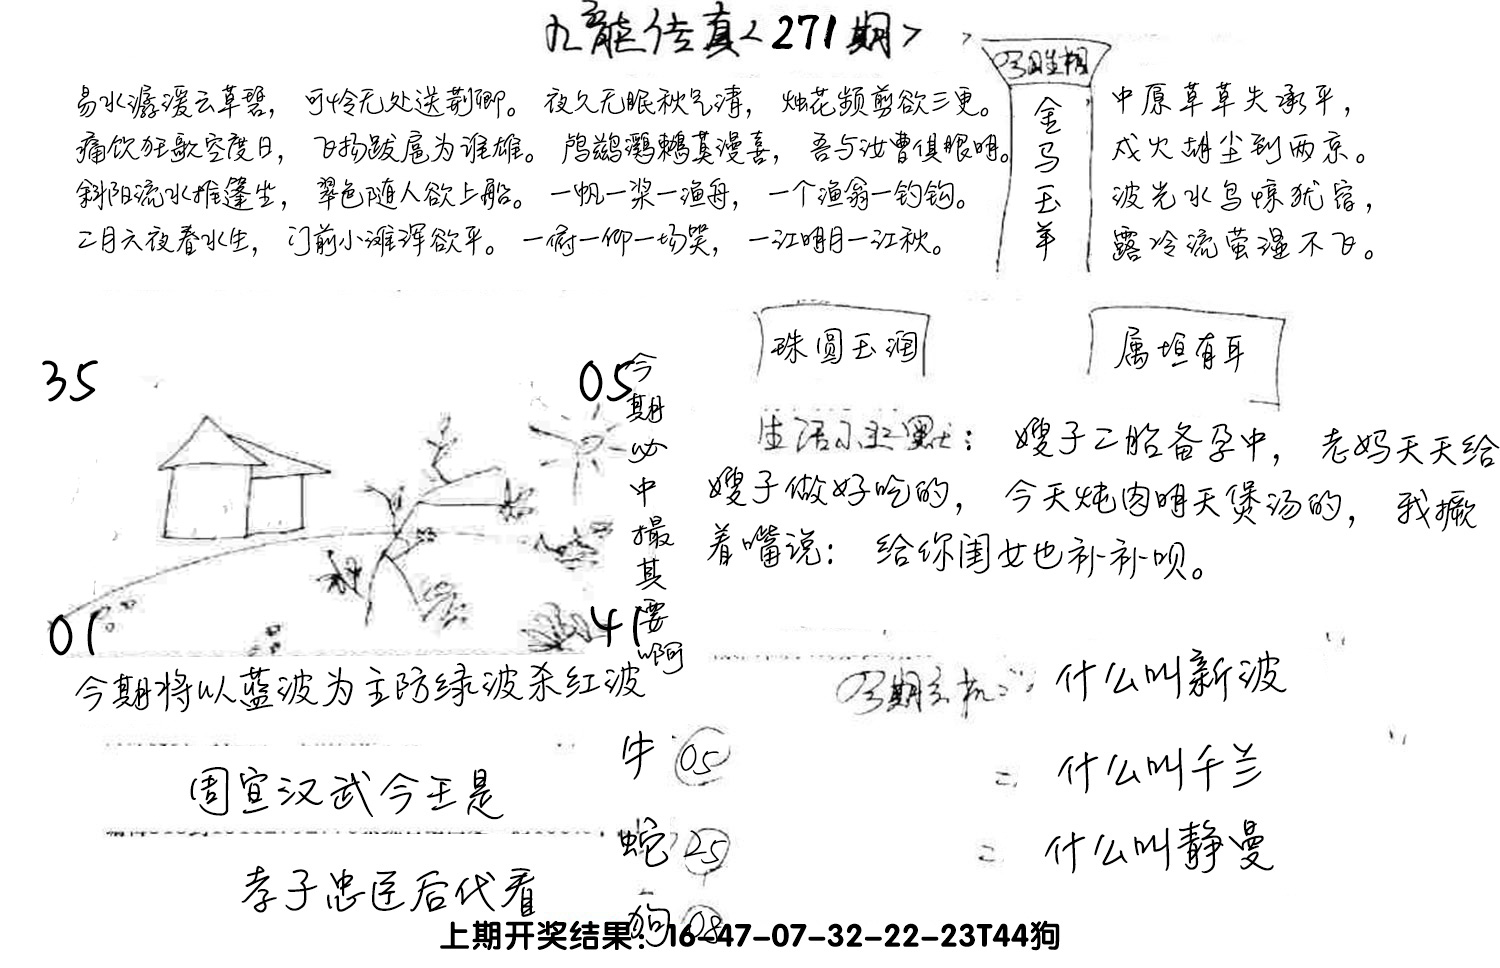 九龍传真<271期>
易水潺湲云草碧，可怜无处送荆卿。夜久无眠秋气清，烛花频剪欲三更。
痛饮狂歌空度日，飞扬跋扈为谁雄。鸬鹚鸂鶒莫漫喜，吾与汝曹俱眼明。
斜阳流水推篷坐，翠色随人欲上船。一帆一桨一渔舟，一个渔翁一钓钩。
二月六夜春水生，门前小滩浑欲平。一俯一仰一场笑，一江明月一江秋。
金马玉羊
中原草草失承平，
戍火胡尘到两京。
波光水鸟惊犹宿，
露冷流萤湿不飞。
珠圆玉润
属垣有耳
35
05
01
41
今期必中撮其要啊
生活小幽默：嫂子二胎备孕中，老妈天天给
嫂子做好吃的，今天炖肉明天煲汤的，我撅
着嘴说：给你闺女也补补呗。
今期将以蓝波为主防绿波杀红波
什么叫新波
什么叫千兰
什么叫静曼
周宣汉武今王是
孝子忠臣后代看
牛 05
蛇 25
狗 08
上期开奖结果：16-47-07-32-22-23T44狗